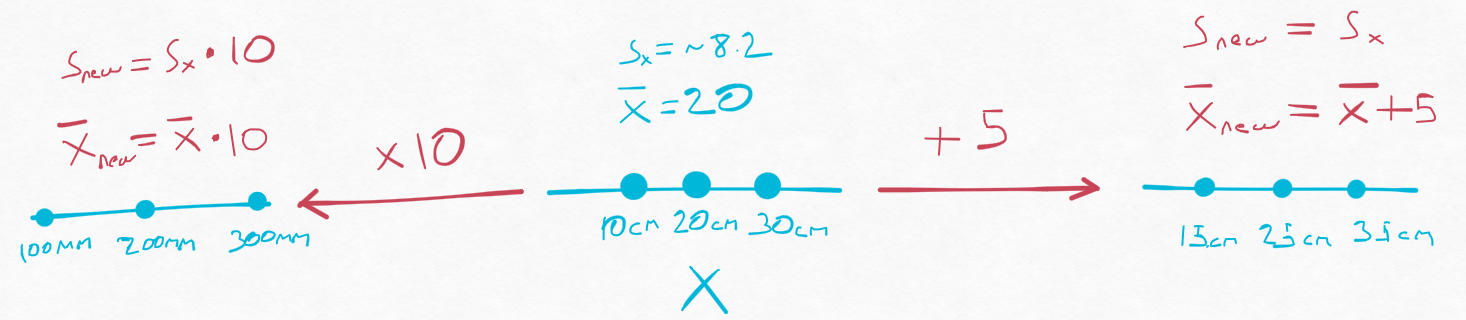 Snew = Sx • 10
x̄new = x̄ • 10
×10
100mm 200mm 300mm
Sx = ~8.2
x̄ = 20
10cm 20cm 30cm
X
+5
Snew = Sx
x̄new = x̄ + 5
15cm 25cm 35cm